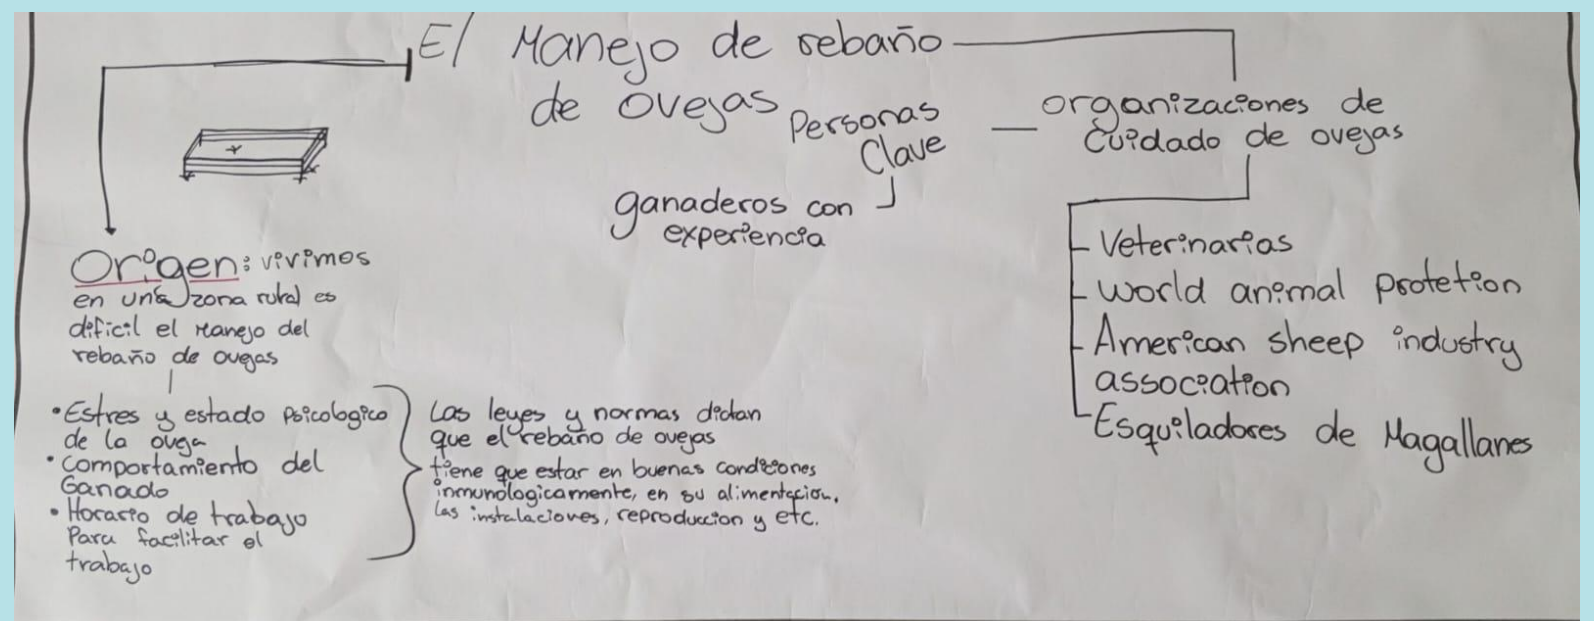 El Manejo de rebaño
de ovejas
Personas
Clave
ganaderos con
experiencia
organizaciones de
Cuidado de ovejas
- Veterinarias
- World animal protetion
- American sheep industry
association
- Esquiladores de Magallanes
Origen: vivimos
en una zona rural es
dificil el manejo del
rebaño de ovegas
• Estres y estado psicologico
de la ovega
• comportamiento del
Ganado
• Horario de trabajo
Para facilitar el
trabajo
Las leyes y normas dictan
que el rebaño de ovejas
tiene que estar en buenas condiciones
inmunologicamente, en su alimentacion,
las instalaciones, reproduccion y etc.